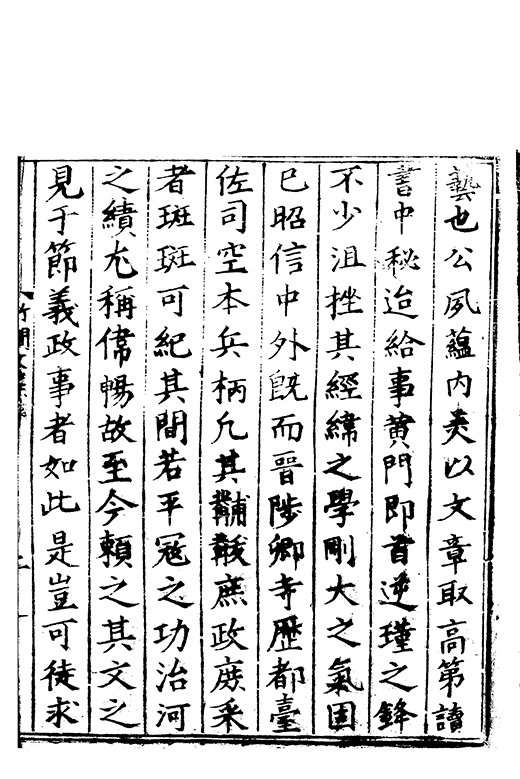 藝也公夙蘊内美以文章取高第讀
書中秘迨給事黄門即首逆瑾之鋒
不少沮挫其經緯之學剛大之氣固
已昭信中外旣而晉陟卿寺歷都臺
佐司空本兵柄凡其黼黻庶政庹采
者斑斑可紀其間若平寇之功治河
之績尤稱偉暢故至今頼之其文之
見于節義政事者如此是豈可徒求